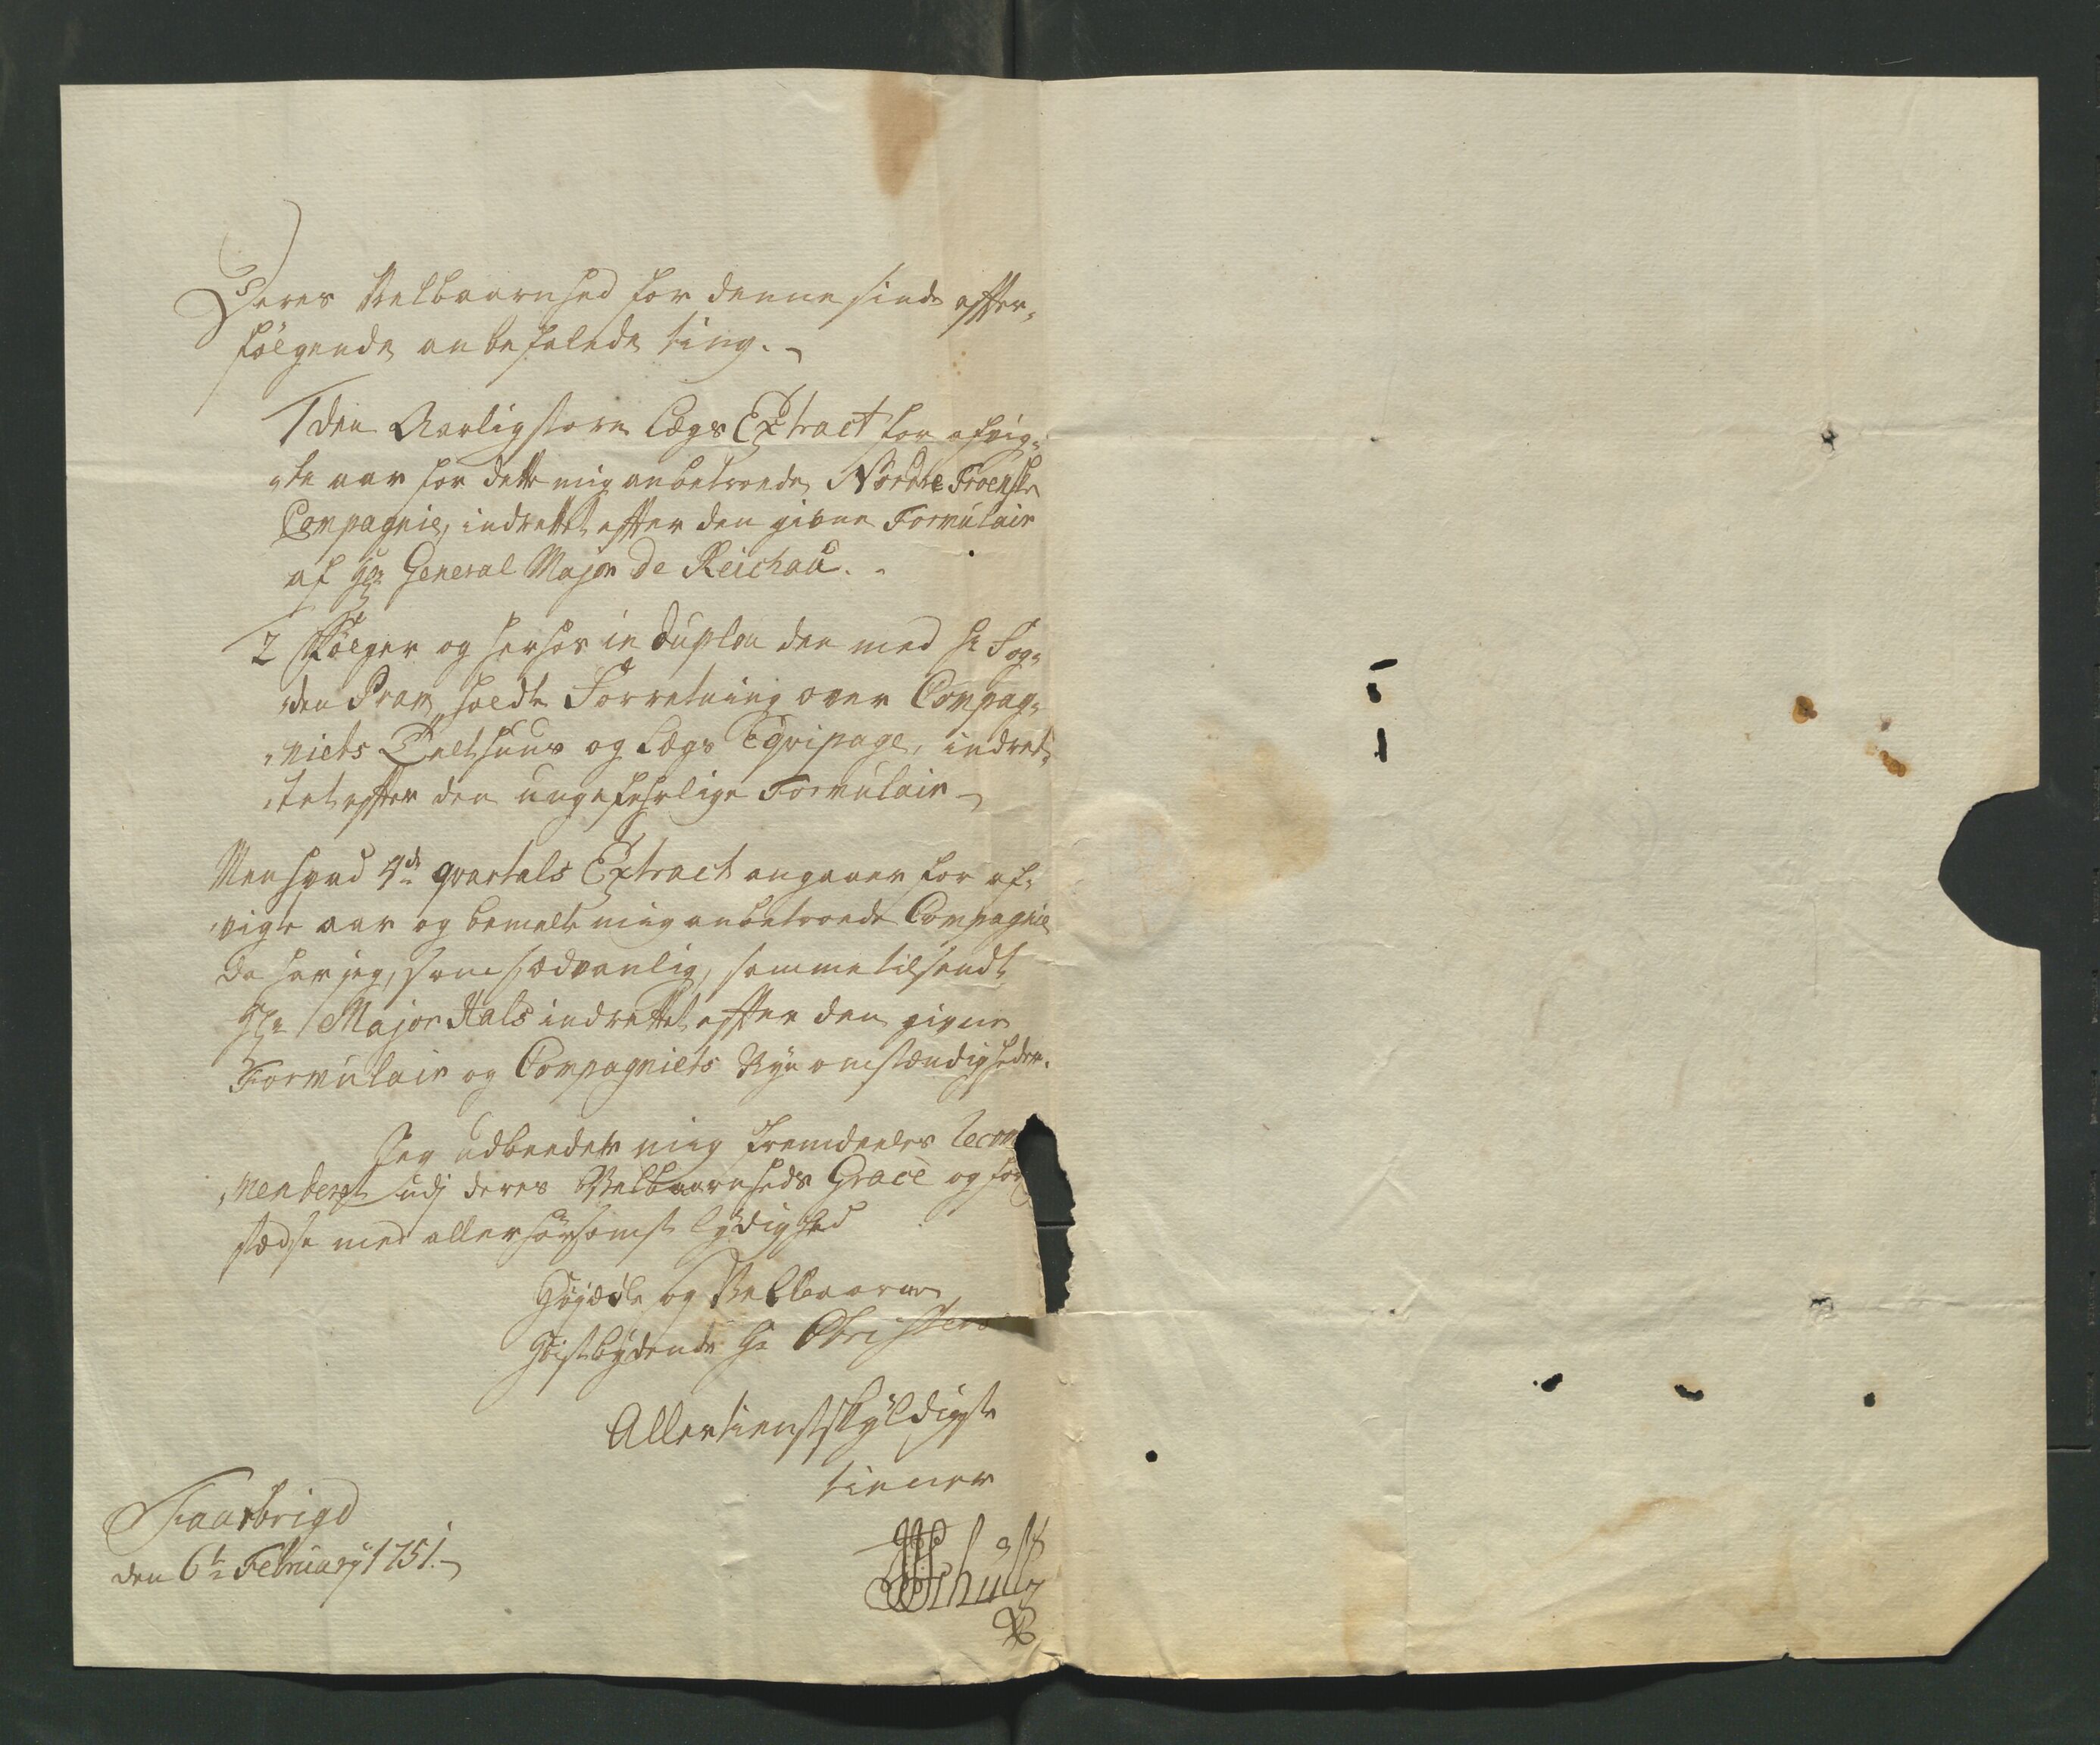 Deres Velbaarenhed for denne sinde effter„
følgende anbefalede ting. –
1 den Aarlig store Lægs Extract for afvig„
„te aar for dette mig anbetroede Nordre Froenske
Compagnie, indrettet effter den givne Formulair
af Hr General Major de Reichau. –
2 følger og herhos in duplo den med Hr Fog„
„den Pram holdte Forretning over Compag„
„niets Telthuus og Lægs Equipage, indret„
„tet effter den ungefehrlige Formulair –
Men hvad 4de qvartals Extract angaaer for af„
„vigte aar og bemelte mig anbetroede Compagnie
da har jeg, som sædvanlig, samme tilsendt
Hr Major Hals indrettet effter den givne
Formulair og Compagniets Nye omstændigheder.
Jeg udbeeder mig fremdeeles recom
„menderet udj deres Velbaarenheds Grace og
stædse med allerhørsomst lydighed
Høyædle og Velbaarne
Høistbydende Hr Obristers
Allertienstskyldigste
tiener
Schültz
Faarbrigd
den 6te February 1751. –